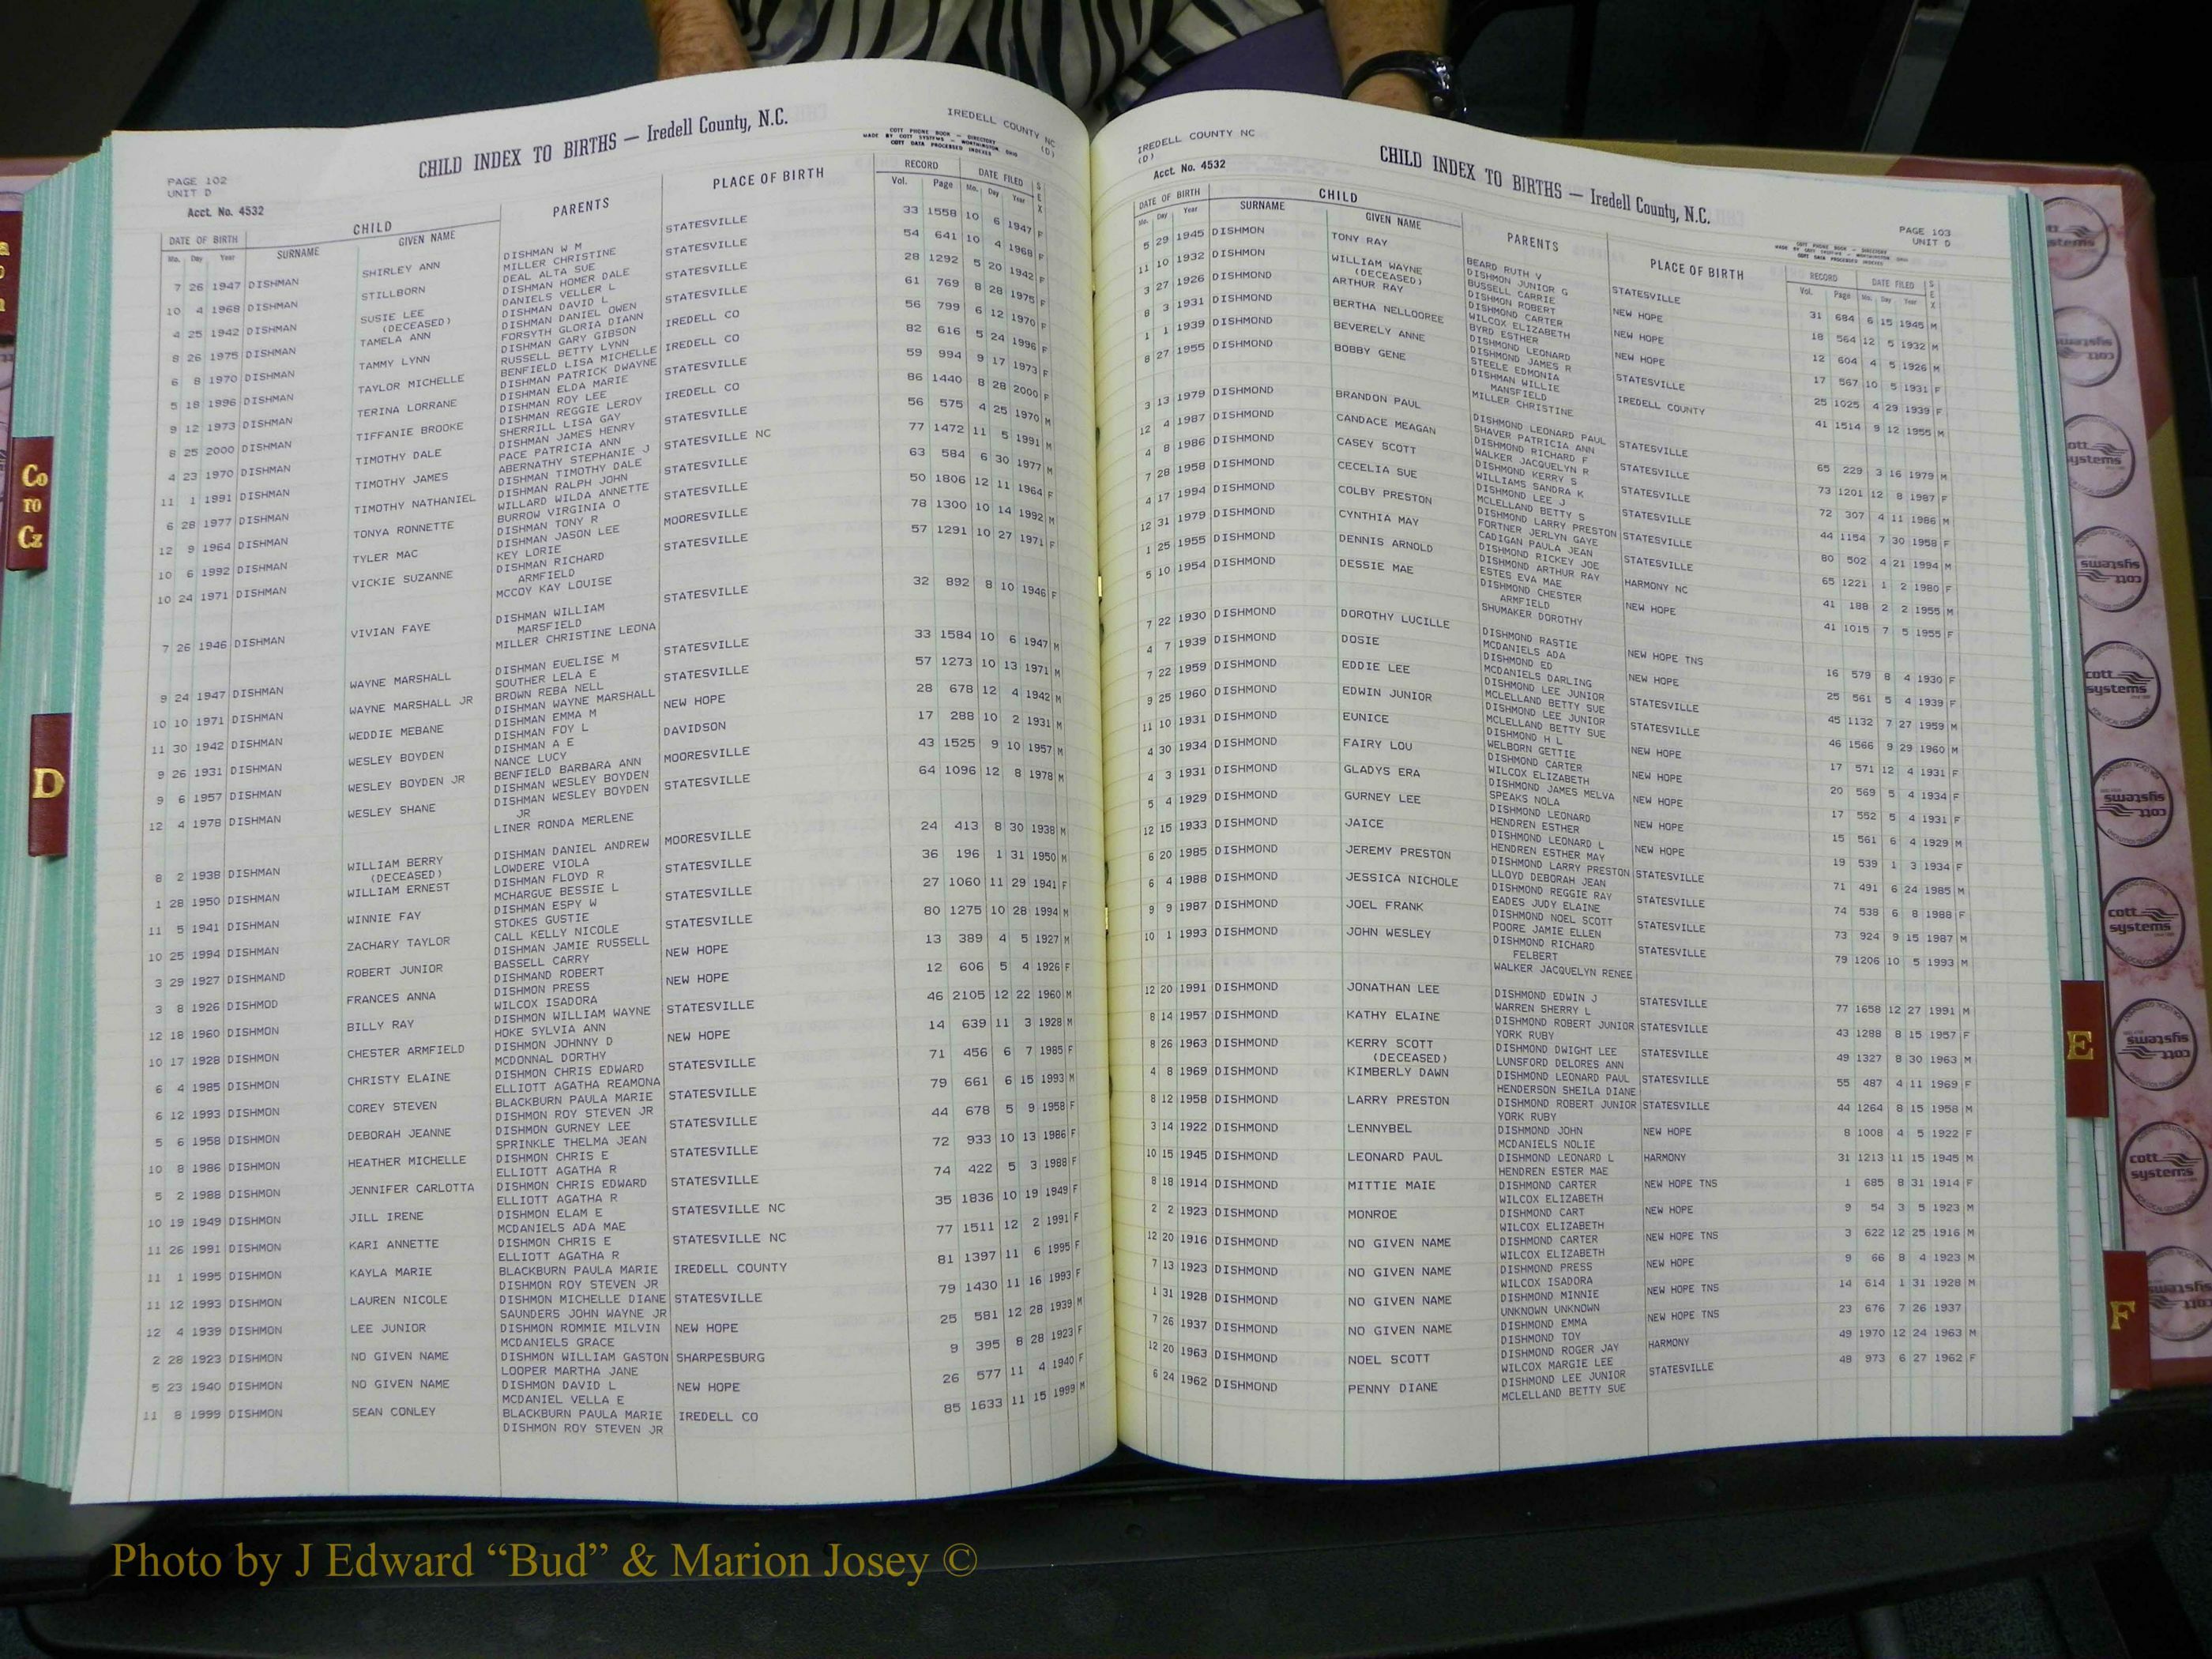 CHILD INDEX TO BIRTHS — Iredell County, N.C.
IREDELL COUNTY NC
(D)
COTT PHONE BOOK — DIRECTORY
MADE BY COTT SYSTEMS — WORTHINGTON, OHIO
COTT DATA PROCESSED INDEXES
PAGE 102
UNIT D
Acct. No. 4532
DATE OF BIRTH CHILD PARENTS PLACE OF BIRTH RECORD DATE FILED SEX
Mo. Day Year SURNAME GIVEN NAME Vol. Page Mo. Day Year
7 26 1947 DISHMAN SHIRLEY ANN DISHMAN W M STATESVILLE 33 1558 10 6 1947 F
MILLER CHRISTINE
10 4 1968 DISHMAN STILLBORN DEAL ALTA SUE STATESVILLE 54 641 10 4 1968 F
DISHMAN HOMER DALE
4 25 1942 DISHMAN SUSIE LEE DANIELS VELLER L STATESVILLE 28 1292 5 20 1942 F
(DECEASED) DISHMAN DAVID L
8 26 1975 DISHMAN TAMELA ANN DISHMAN DANIEL OWEN STATESVILLE 61 769 8 28 1975 F
FORSYTH GLORIA DIANN
6 8 1970 DISHMAN TAMMY LYNN DISHMAN GARY GIBSON IREDELL CO 56 799 6 12 1970 F
RUSSELL BETTY LYNN
5 18 1996 DISHMAN TAYLOR MICHELLE BENFIELD LISA MICHELLE IREDELL CO 82 616 5 24 1996 F
DISHMAN PATRICK DWAYNE
9 12 1973 DISHMAN TERINA LORRANE DISHMAN ELDA MARIE STATESVILLE 59 994 9 17 1973 F
DISHMAN ROY LEE
8 25 2000 DISHMAN TIFFANIE BROOKE DISHMAN REGGIE LEROY IREDELL CO 86 1440 8 28 2000 F
SHERRILL LISA GAY
4 23 1970 DISHMAN TIMOTHY DALE DISHMAN JAMES HENRY STATESVILLE 56 575 4 25 1970 M
PACE PATRICIA ANN
11 1 1991 DISHMAN TIMOTHY JAMES ABERNATHY STEPHANIE J STATESVILLE NC 77 1472 11 5 1991 M
DISHMAN TIMOTHY DALE
6 28 1977 DISHMAN TIMOTHY NATHANIEL DISHMAN RALPH JOHN STATESVILLE 63 584 6 30 1977 M
WILLARD WILDA ANNETTE
12 9 1964 DISHMAN TONYA RONNETTE BURROW VIRGINIA O STATESVILLE 50 1806 12 11 1964 F
DISHMAN TONY R
10 6 1992 DISHMAN TYLER MAC DISHMAN JASON LEE MOORESVILLE 78 1300 10 14 1992 M
KEY LORIE
10 24 1971 DISHMAN VICKIE SUZANNE DISHMAN RICHARD STATESVILLE 57 1291 10 27 1971 F
ARMFIELD
MCCOY KAY LOUISE
7 26 1946 DISHMAN VIVIAN FAYE DISHMAN WILLIAM STATESVILLE 32 892 8 10 1946 F
MARSFIELD
MILLER CHRISTINE LEONA
9 24 1947 DISHMAN WAYNE MARSHALL DISHMAN EUELISE M STATESVILLE 33 1584 10 6 1947 M
SOUTHER LELA E
10 10 1971 DISHMAN WAYNE MARSHALL JR BROWN REBA NELL STATESVILLE 57 1273 10 13 1971 M
DISHMAN WAYNE MARSHALL
11 30 1942 DISHMAN WEDDIE MEBANE DISHMAN EMMA M NEW HOPE 28 678 12 4 1942 M
DISHMAN FOY L
9 26 1931 DISHMAN WESLEY BOYDEN DISHMAN A E DAVIDSON 17 288 10 2 1931 M
NANCE LUCY
9 6 1957 DISHMAN WESLEY BOYDEN JR BENFIELD BARBARA ANN MOORESVILLE 43 1525 9 10 1957 M
DISHMAN WESLEY BOYDEN
12 4 1978 DISHMAN WESLEY SHANE DISHMAN WESLEY BOYDEN STATESVILLE 64 1096 12 8 1978 M
JR
LINER RONDA MERLENE
8 2 1938 DISHMAN WILLIAM BERRY DISHMAN DANIEL ANDREW MOORESVILLE 24 413 8 30 1938 M
(DECEASED) LOWDERE VIOLA
1 28 1950 DISHMAN WILLIAM ERNEST DISHMAN FLOYD R STATESVILLE 36 196 1 31 1950 M
MCHARGUE BESSIE L
11 5 1941 DISHMAN WINNIE FAY DISHMAN ESPY W STATESVILLE 27 1060 11 29 1941 F
STOKES GUSTIE
10 25 1994 DISHMAN ZACHARY TAYLOR CALL KELLY NICOLE STATESVILLE 80 1275 10 28 1994 M
DISHMAN JAMIE RUSSELL
3 29 1927 DISHMAND ROBERT JUNIOR BASSELL CARRY NEW HOPE 13 389 4 5 1927 M
DISHMAND ROBERT
3 8 1926 DISHMOD FRANCES ANNA DISHMON PRESS NEW HOPE 12 606 5 4 1926 F
WILCOX ISADORA
12 18 1960 DISHMON BILLY RAY DISHMON WILLIAM WAYNE STATESVILLE 46 2105 12 22 1960 M
HOKE SYLVIA ANN
10 17 1928 DISHMON CHESTER ARMFIELD DISHMON JOHNNY D NEW HOPE 14 639 11 3 1928 M
MCDONNAL DORTHY
6 4 1985 DISHMON CHRISTY ELAINE DISHMON CHRIS EDWARD STATESVILLE 71 456 6 7 1985 F
ELLIOTT AGATHA REAMONA
6 12 1993 DISHMON COREY STEVEN BLACKBURN PAULA MARIE STATESVILLE 79 661 6 15 1993 M
DISHMON ROY STEVEN JR
5 6 1958 DISHMON DEBORAH JEANNE DISHMON GURNEY LEE STATESVILLE 44 678 5 9 1958 F
SPRINKLE THELMA JEAN
10 8 1986 DISHMON HEATHER MICHELLE DISHMON CHRIS E STATESVILLE 72 933 10 13 1986 F
ELLIOTT AGATHA R
5 2 1988 DISHMON JENNIFER CARLOTTA DISHMON CHRIS EDWARD STATESVILLE 74 422 5 3 1988 F
ELLIOTT AGATHA R
10 19 1949 DISHMON JILL IRENE DISHMON ELAM E STATESVILLE NC 35 1836 10 19 1949 F
MCDANIELS ADA MAE
11 26 1991 DISHMON KARI ANNETTE DISHMON CHRIS E STATESVILLE NC 77 1511 12 2 1991 F
ELLIOTT AGATHA R
11 1 1995 DISHMON KAYLA MARIE BLACKBURN PAULA MARIE IREDELL COUNTY 81 1397 11 6 1995 F
DISHMON ROY STEVEN JR
11 12 1993 DISHMON LAUREN NICOLE DISHMON MICHELLE DIANE STATESVILLE 79 1430 11 16 1993 F
SAUNDERS JOHN WAYNE JR
12 4 1939 DISHMON LEE JUNIOR DISHMON ROMMIE MILVIN NEW HOPE 25 581 12 28 1939 M
MCDANIELS GRACE
2 28 1923 DISHMON NO GIVEN NAME DISHMON WILLIAM GASTON SHARPESBURG 9 395 8 28 1923 F
LOOPER MARTHA JANE
5 23 1940 DISHMON NO GIVEN NAME DISHMON DAVID L NEW HOPE 26 577 11 4 1940 F
MCDANIEL VELLA E
11 8 1999 DISHMON SEAN CONLEY BLACKBURN PAULA MARIE IREDELL CO 85 1633 11 15 1999 M
DISHMON ROY STEVEN JR
IREDELL COUNTY NC
(D)
Acct. No. 4532
CHILD INDEX TO BIRTHS — Iredell County, N.C.
PAGE 103
UNIT D
COTT PHONE BOOK — DIRECTORY
MADE BY COTT SYSTEMS — WORTHINGTON, OHIO
COTT DATA PROCESSED INDEXES
DATE OF BIRTH CHILD PARENTS PLACE OF BIRTH RECORD DATE FILED SEX
Mo. Day Year SURNAME GIVEN NAME Vol. Page Mo. Day Year
5 29 1945 DISHMON TONY RAY BEARD RUTH V STATESVILLE 31 684 6 15 1945 M
DISHMON JUNIOR G
11 10 1932 DISHMON WILLIAM WAYNE BUSSELL CARRIE NEW HOPE 18 564 12 5 1932 M
(DECEASED) DISHMON ROBERT
3 27 1926 DISHMOND ARTHUR RAY DISHMOND CARTER NEW HOPE 12 604 4 5 1926 M
WILCOX ELIZABETH
8 3 1931 DISHMOND BERTHA NELLOOREE BYRD ESTHER NEW HOPE 17 567 10 5 1931 F
DISHMOND LEONARD
1 1 1939 DISHMOND BEVERELY ANNE DISHMOND JAMES R STATESVILLE 25 1025 4 29 1939 F
STEELE EDMONIA
8 27 1955 DISHMOND BOBBY GENE DISHMAN WILLIE IREDELL COUNTY 41 1514 9 12 1955 M
MANSFIELD
MILLER CHRISTINE
3 13 1979 DISHMOND BRANDON PAUL DISHMOND LEONARD PAUL STATESVILLE 65 229 3 16 1979 M
SHAVER PATRICIA ANN
12 4 1987 DISHMOND CANDACE MEAGAN DISHMOND RICHARD F STATESVILLE 73 1201 12 8 1987 F
WALKER JACQUELYN R
4 8 1986 DISHMOND CASEY SCOTT DISHMOND KERRY S STATESVILLE 72 307 4 11 1986 M
WILLIAMS SANDRA K
7 28 1958 DISHMOND CECELIA SUE DISHMOND LEE J STATESVILLE 44 1154 7 30 1958 F
MCLELLAND BETTY S
4 17 1994 DISHMOND COLBY PRESTON DISHMOND LARRY PRESTON STATESVILLE 80 502 4 21 1994 M
FORTNER JERLYN GAYE
12 31 1979 DISHMOND CYNTHIA MAY CADIGAN PAULA JEAN STATESVILLE 65 1221 1 2 1980 F
DISHMOND RICKEY JOE
1 25 1955 DISHMOND DENNIS ARNOLD DISHMOND ARTHUR RAY HARMONY NC 41 188 2 2 1955 M
ESTES EVA MAE
5 10 1954 DISHMOND DESSIE MAE DISHMOND CHESTER NEW HOPE 41 1015 7 5 1955 F
ARMFIELD
SHUMAKER DOROTHY
7 22 1930 DISHMOND DOROTHY LUCILLE DISHMOND RASTIE NEW HOPE TNS 16 579 8 4 1930 F
MCDANIELS ADA
4 7 1939 DISHMOND DOSIE DISHMOND ED NEW HOPE 25 561 5 4 1939 F
MCDANIELS DARLING
7 22 1959 DISHMOND EDDIE LEE DISHMOND LEE JUNIOR STATESVILLE 45 1132 7 27 1959 M
MCLELLAND BETTY SUE
9 25 1960 DISHMOND EDWIN JUNIOR DISHMOND LEE JUNIOR STATESVILLE 46 1566 9 29 1960 M
MCLELLAND BETTY SUE
11 10 1931 DISHMOND EUNICE DISHMOND H L NEW HOPE 17 571 12 4 1931 F
WELBORN GETTIE
4 30 1934 DISHMOND FAIRY LOU DISHMOND CARTER NEW HOPE 20 569 5 4 1934 F
WILCOX ELIZABETH
4 3 1931 DISHMOND GLADYS ERA DISHMOND JAMES MELVA NEW HOPE 17 552 5 4 1931 F
SPEAKS NOLA
5 4 1929 DISHMOND GURNEY LEE DISHMOND LEONARD NEW HOPE 15 561 6 4 1929 M
HENDREN ESTHER
12 15 1933 DISHMOND JAICE DISHMOND LEONARD L NEW HOPE 19 539 1 3 1934 F
HENDREN ESTHER MAY
6 20 1985 DISHMOND JEREMY PRESTON DISHMOND LARRY PRESTON STATESVILLE 71 491 6 24 1985 M
LLOYD DEBORAH JEAN
6 4 1988 DISHMOND JESSICA NICHOLE DISHMOND REGGIE RAY STATESVILLE 74 538 6 8 1988 F
EADES JUDY ELAINE
9 9 1987 DISHMOND JOEL FRANK DISHMOND NOEL SCOTT STATESVILLE 73 924 9 15 1987 M
POORE JAMIE ELLEN
10 1 1993 DISHMOND JOHN WESLEY DISHMOND RICHARD STATESVILLE 79 1206 10 5 1993 M
FELBERT
WALKER JACQUELYN RENEE
12 20 1991 DISHMOND JONATHAN LEE DISHMOND EDWIN J STATESVILLE 77 1658 12 27 1991 M
WARREN SHERRY L
8 14 1957 DISHMOND KATHY ELAINE DISHMOND ROBERT JUNIOR STATESVILLE 43 1288 8 15 1957 F
YORK RUBY
8 26 1963 DISHMOND KERRY SCOTT DISHMOND DWIGHT LEE STATESVILLE 49 1327 8 30 1963 M
(DECEASED) LUNSFORD DELORES ANN
4 8 1969 DISHMOND KIMBERLY DAWN DISHMOND LEONARD PAUL STATESVILLE 55 487 4 11 1969 F
HENDERSON SHEILA DIANE
8 12 1958 DISHMOND LARRY PRESTON DISHMOND ROBERT JUNIOR STATESVILLE 44 1264 8 15 1958 M
YORK RUBY
3 14 1922 DISHMOND LENNYBEL DISHMOND JOHN NEW HOPE 8 1008 4 5 1922 F
MCDANIELS NOLIE
10 15 1945 DISHMOND LEONARD PAUL DISHMOND LEONARD L HARMONY 31 1213 11 15 1945 M
HENDREN ESTER MAE
8 18 1914 DISHMOND MITTIE MAIE DISHMOND CARTER NEW HOPE TNS 1 685 8 31 1914 F
WILCOX ELIZABETH
2 2 1923 DISHMOND MONROE DISHMOND CART NEW HOPE 9 54 3 5 1923 M
WILCOX ELIZABETH
12 20 1916 DISHMOND NO GIVEN NAME DISHMOND CARTER NEW HOPE TNS 3 622 12 25 1916 M
WILCOX ELIZABETH
7 13 1923 DISHMOND NO GIVEN NAME DISHMOND PRESS NEW HOPE 9 66 8 4 1923 M
WILCOX ISADORA
1 31 1928 DISHMOND NO GIVEN NAME DISHMOND MINNIE NEW HOPE TNS 14 614 1 31 1928 M
UNKNOWN UNKNOWN
7 26 1937 DISHMOND NO GIVEN NAME DISHMOND EMMA NEW HOPE TNS 23 676 7 26 1937
DISHMOND TOY
12 20 1963 DISHMOND NOEL SCOTT DISHMOND ROGER JAY HARMONY 49 1970 12 24 1963 M
WILCOX MARGIE LEE
6 24 1962 DISHMOND PENNY DIANE DISHMOND LEE JUNIOR STATESVILLE 48 973 6 27 1962 F
MCLELLAND BETTY SUE
Co
TO
Cz
D
E
F
cott
systems
Photo by J Edward “Bud” & Marion Josey ©